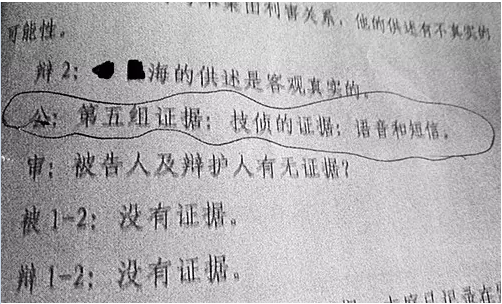 利害关系，他的供述有不真实的
可能性。
辩2：海的供述是客观真实的。
公：第五组证据：技侦的证据；语音和短信。
审：被告人及辩护人有无证据？
被1-2：没有证据。
辩1-2：没有证据。